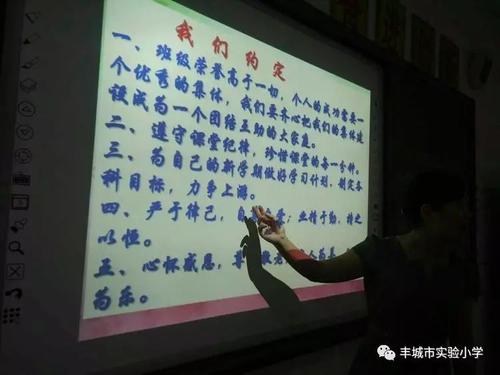 我们约定
一、班级荣誉高于一切，个人的成功需要一
个优秀的集体，我们要齐心把我们的集体建
设成为一个团结互助的大家庭。
二、遵守课堂纪律，珍惜课堂的每一分钟。
三、为自己的新学期做好学习计划，制定各
科目标，力争上游。
四、严于律己，自；业精于勤，持之
以恒。
五、心怀感恩，尊人为
为乐。
丰城市实验小学